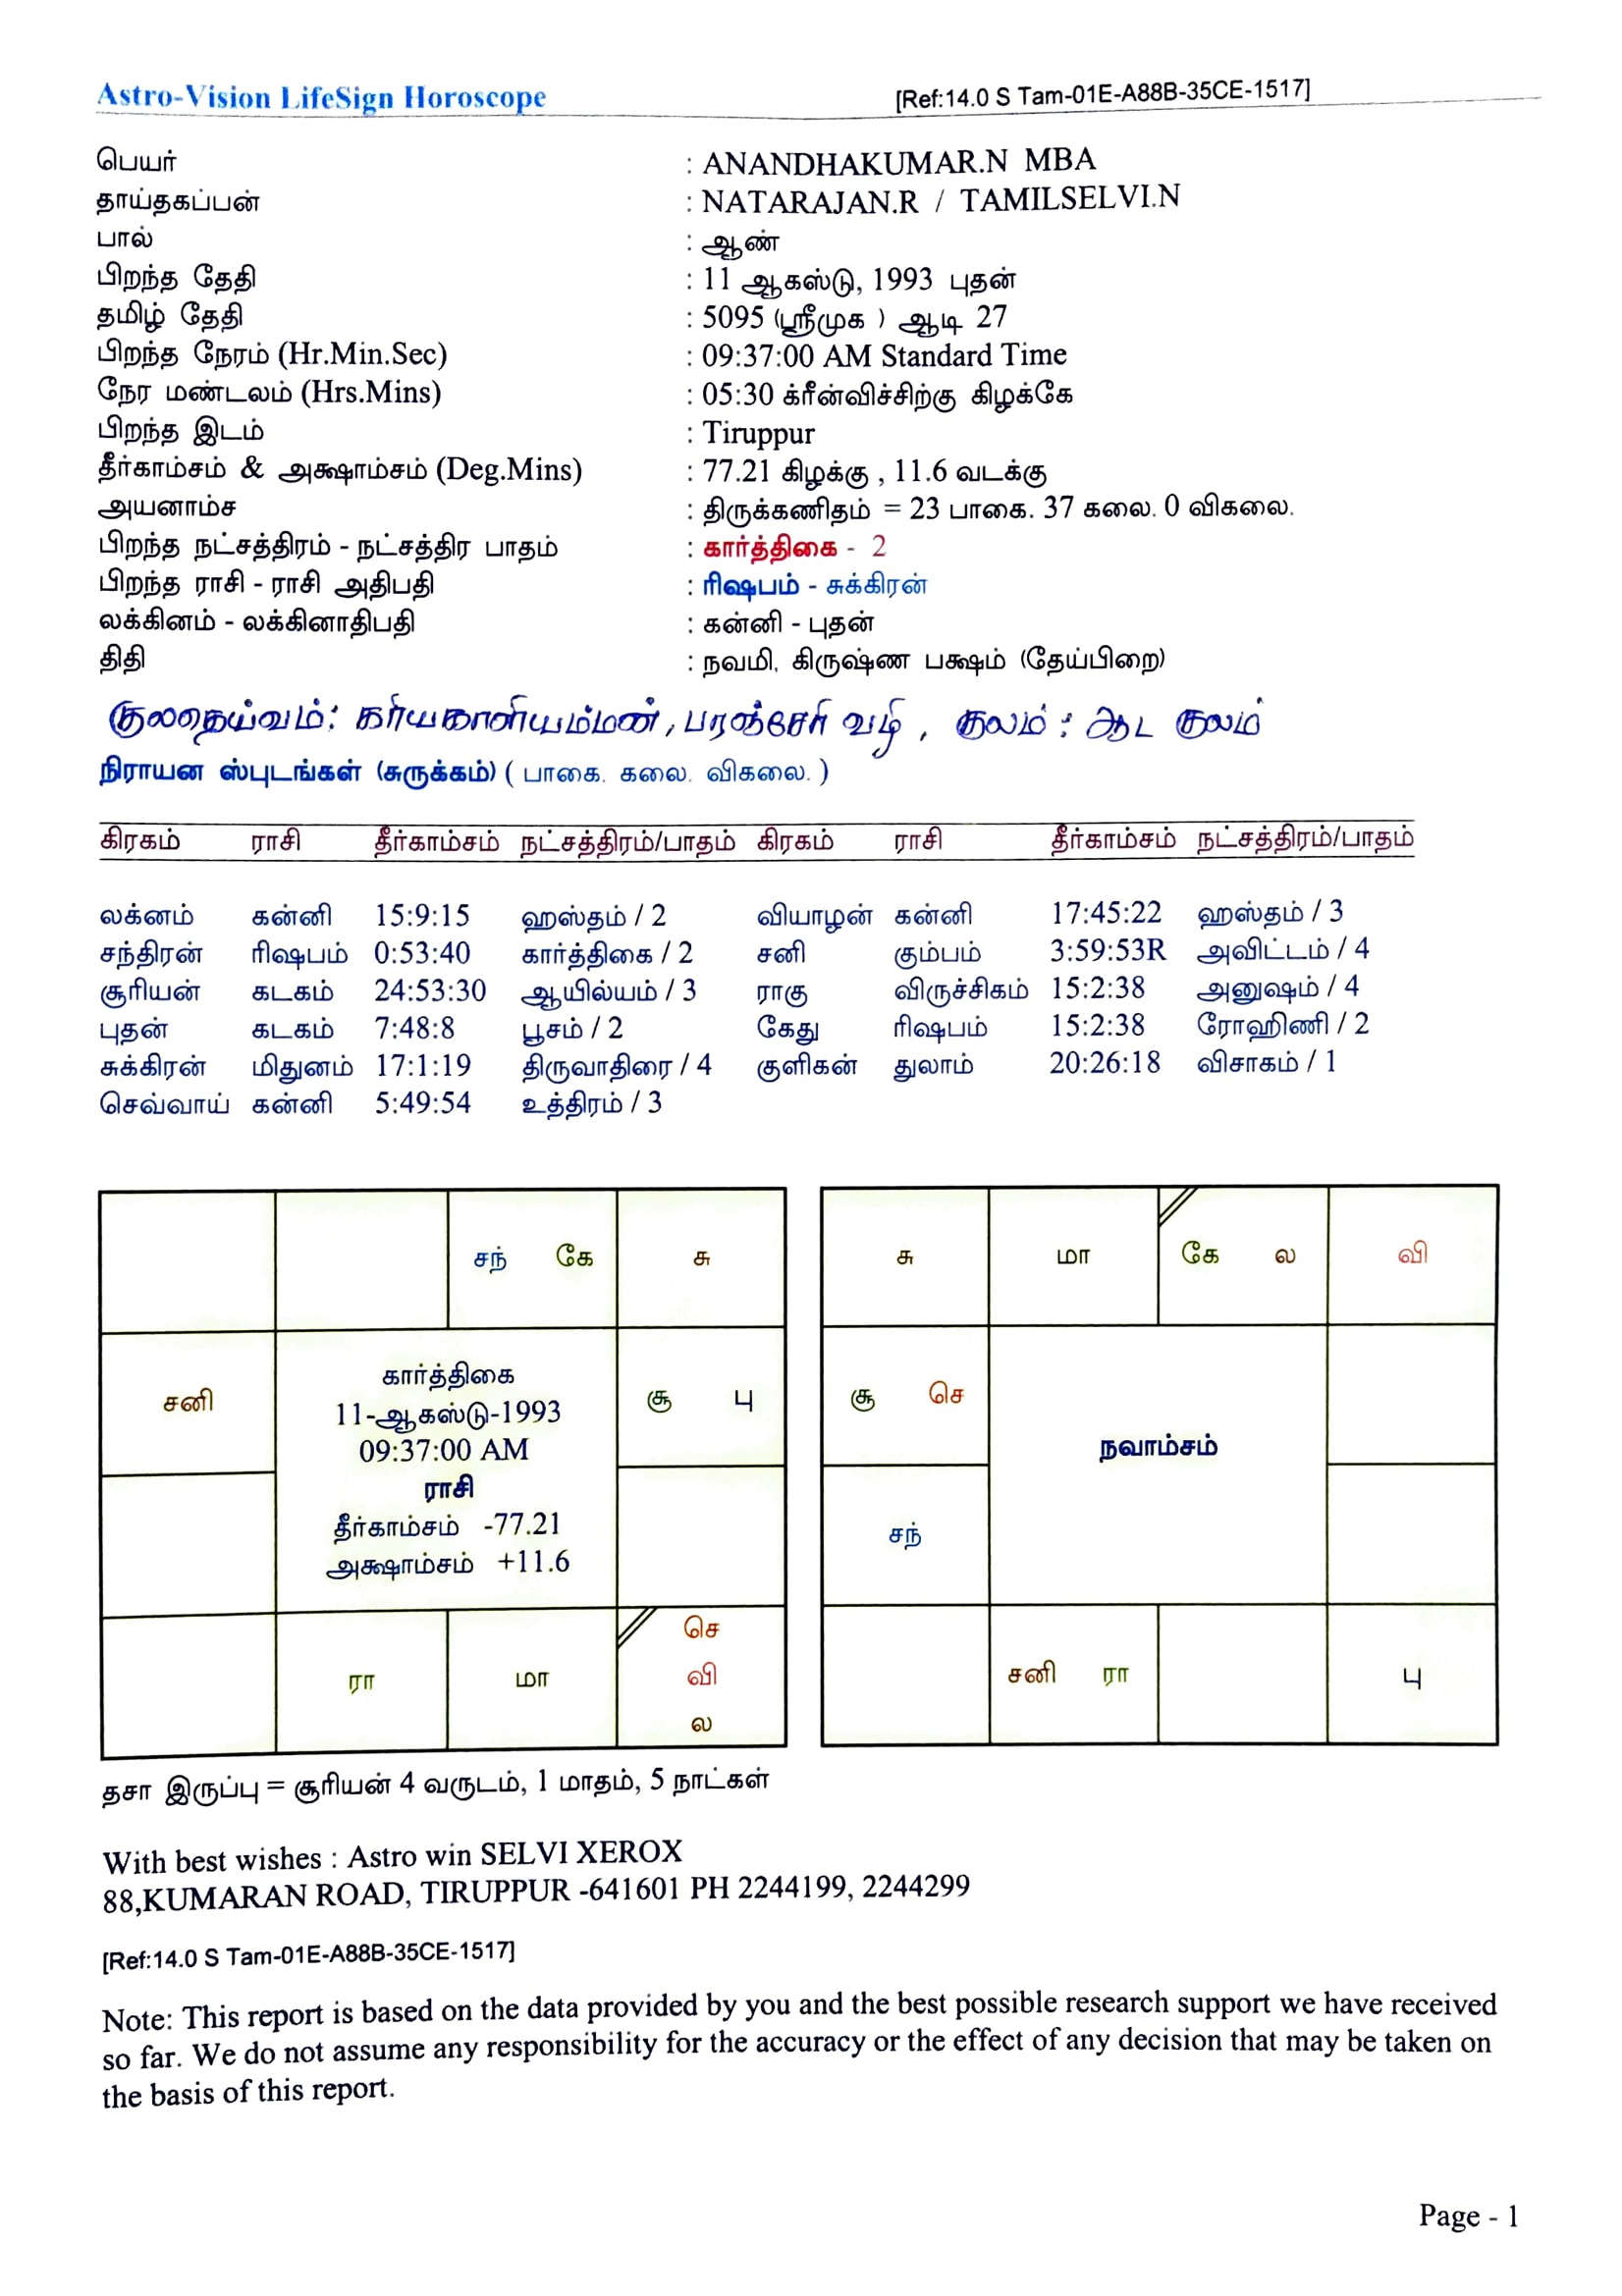 Astro-Vision LifeSign Horoscope [Ref:14.0 S Tam-01E-A88B-35CE-1517]
பெயர் : ANANDHAKUMAR.N MBA
தாய்தகப்பன் : NATARAJAN.R / TAMILSELVI.N
பால் : ஆண்
பிறந்த தேதி : 11 ஆகஸ்டு, 1993 புதன்
தமிழ் தேதி : 5095 (ஸ்ரீமுக ) ஆடி 27
பிறந்த நேரம் (Hr.Min.Sec) : 09:37:00 AM Standard Time
நேர மண்டலம் (Hrs.Mins) : 05:30 க்ரீன்விச்சிற்கு கிழக்கே
பிறந்த இடம் : Tiruppur
தீர்காம்சம் & அக்ஷாம்சம் (Deg.Mins) : 77.21 கிழக்கு , 11.6 வடக்கு
அயனாம்ச : திருக்கணிதம் = 23 பாகை. 37 கலை. 0 விகலை.
பிறந்த நட்சத்திரம் - நட்சத்திர பாதம் : கார்த்திகை - 2
பிறந்த ராசி - ராசி அதிபதி : ரிஷபம் - சுக்கிரன்
லக்கினம் - லக்கினாதிபதி : கன்னி - புதன்
திதி : நவமி, கிருஷ்ண பக்ஷம் (தேய்பிறை)
குலதெய்வம்: கரியகாளியம்மன், பரஞ்சேர் வழி , குலம் : ஆட குலம்
நிராயன ஸ்புடங்கள் (சுருக்கம்) ( பாகை. கலை. விகலை. )
கிரகம் ராசி தீர்காம்சம் நட்சத்திரம்/பாதம் கிரகம் ராசி தீர்காம்சம் நட்சத்திரம்/பாதம்
லக்னம் கன்னி 15:9:15 ஹஸ்தம் / 2 வியாழன் கன்னி 17:45:22 ஹஸ்தம் / 3
சந்திரன் ரிஷபம் 0:53:40 கார்த்திகை / 2 சனி கும்பம் 3:59:53R அவிட்டம் / 4
சூரியன் கடகம் 24:53:30 ஆயில்யம் / 3 ராகு விருச்சிகம் 15:2:38 அனுஷம் / 4
புதன் கடகம் 7:48:8 பூசம் / 2 கேது ரிஷபம் 15:2:38 ரோஹிணி / 2
சுக்கிரன் மிதுனம் 17:1:19 திருவாதிரை / 4 குளிகன் துலாம் 20:26:18 விசாகம் / 1
செவ்வாய் கன்னி 5:49:54 உத்திரம் / 3
சந் கே சு
சனி சூ பு
கார்த்திகை
11-ஆகஸ்டு-1993
09:37:00 AM
ராசி
தீர்காம்சம் -77.21
அக்ஷாம்சம் +11.6
ரா மா செ
வி
ல
சு மா கே ல வி
சூ செ
நவாம்சம்
சந்
சனி ரா பு
தசா இருப்பு = சூரியன் 4 வருடம், 1 மாதம், 5 நாட்கள்
With best wishes : Astro win SELVI XEROX
88,KUMARAN ROAD, TIRUPPUR -641601 PH 2244199, 2244299
[Ref:14.0 S Tam-01E-A88B-35CE-1517]
Note: This report is based on the data provided by you and the best possible research support we have received
so far. We do not assume any responsibility for the accuracy or the effect of any decision that may be taken on
the basis of this report.
Page - 1